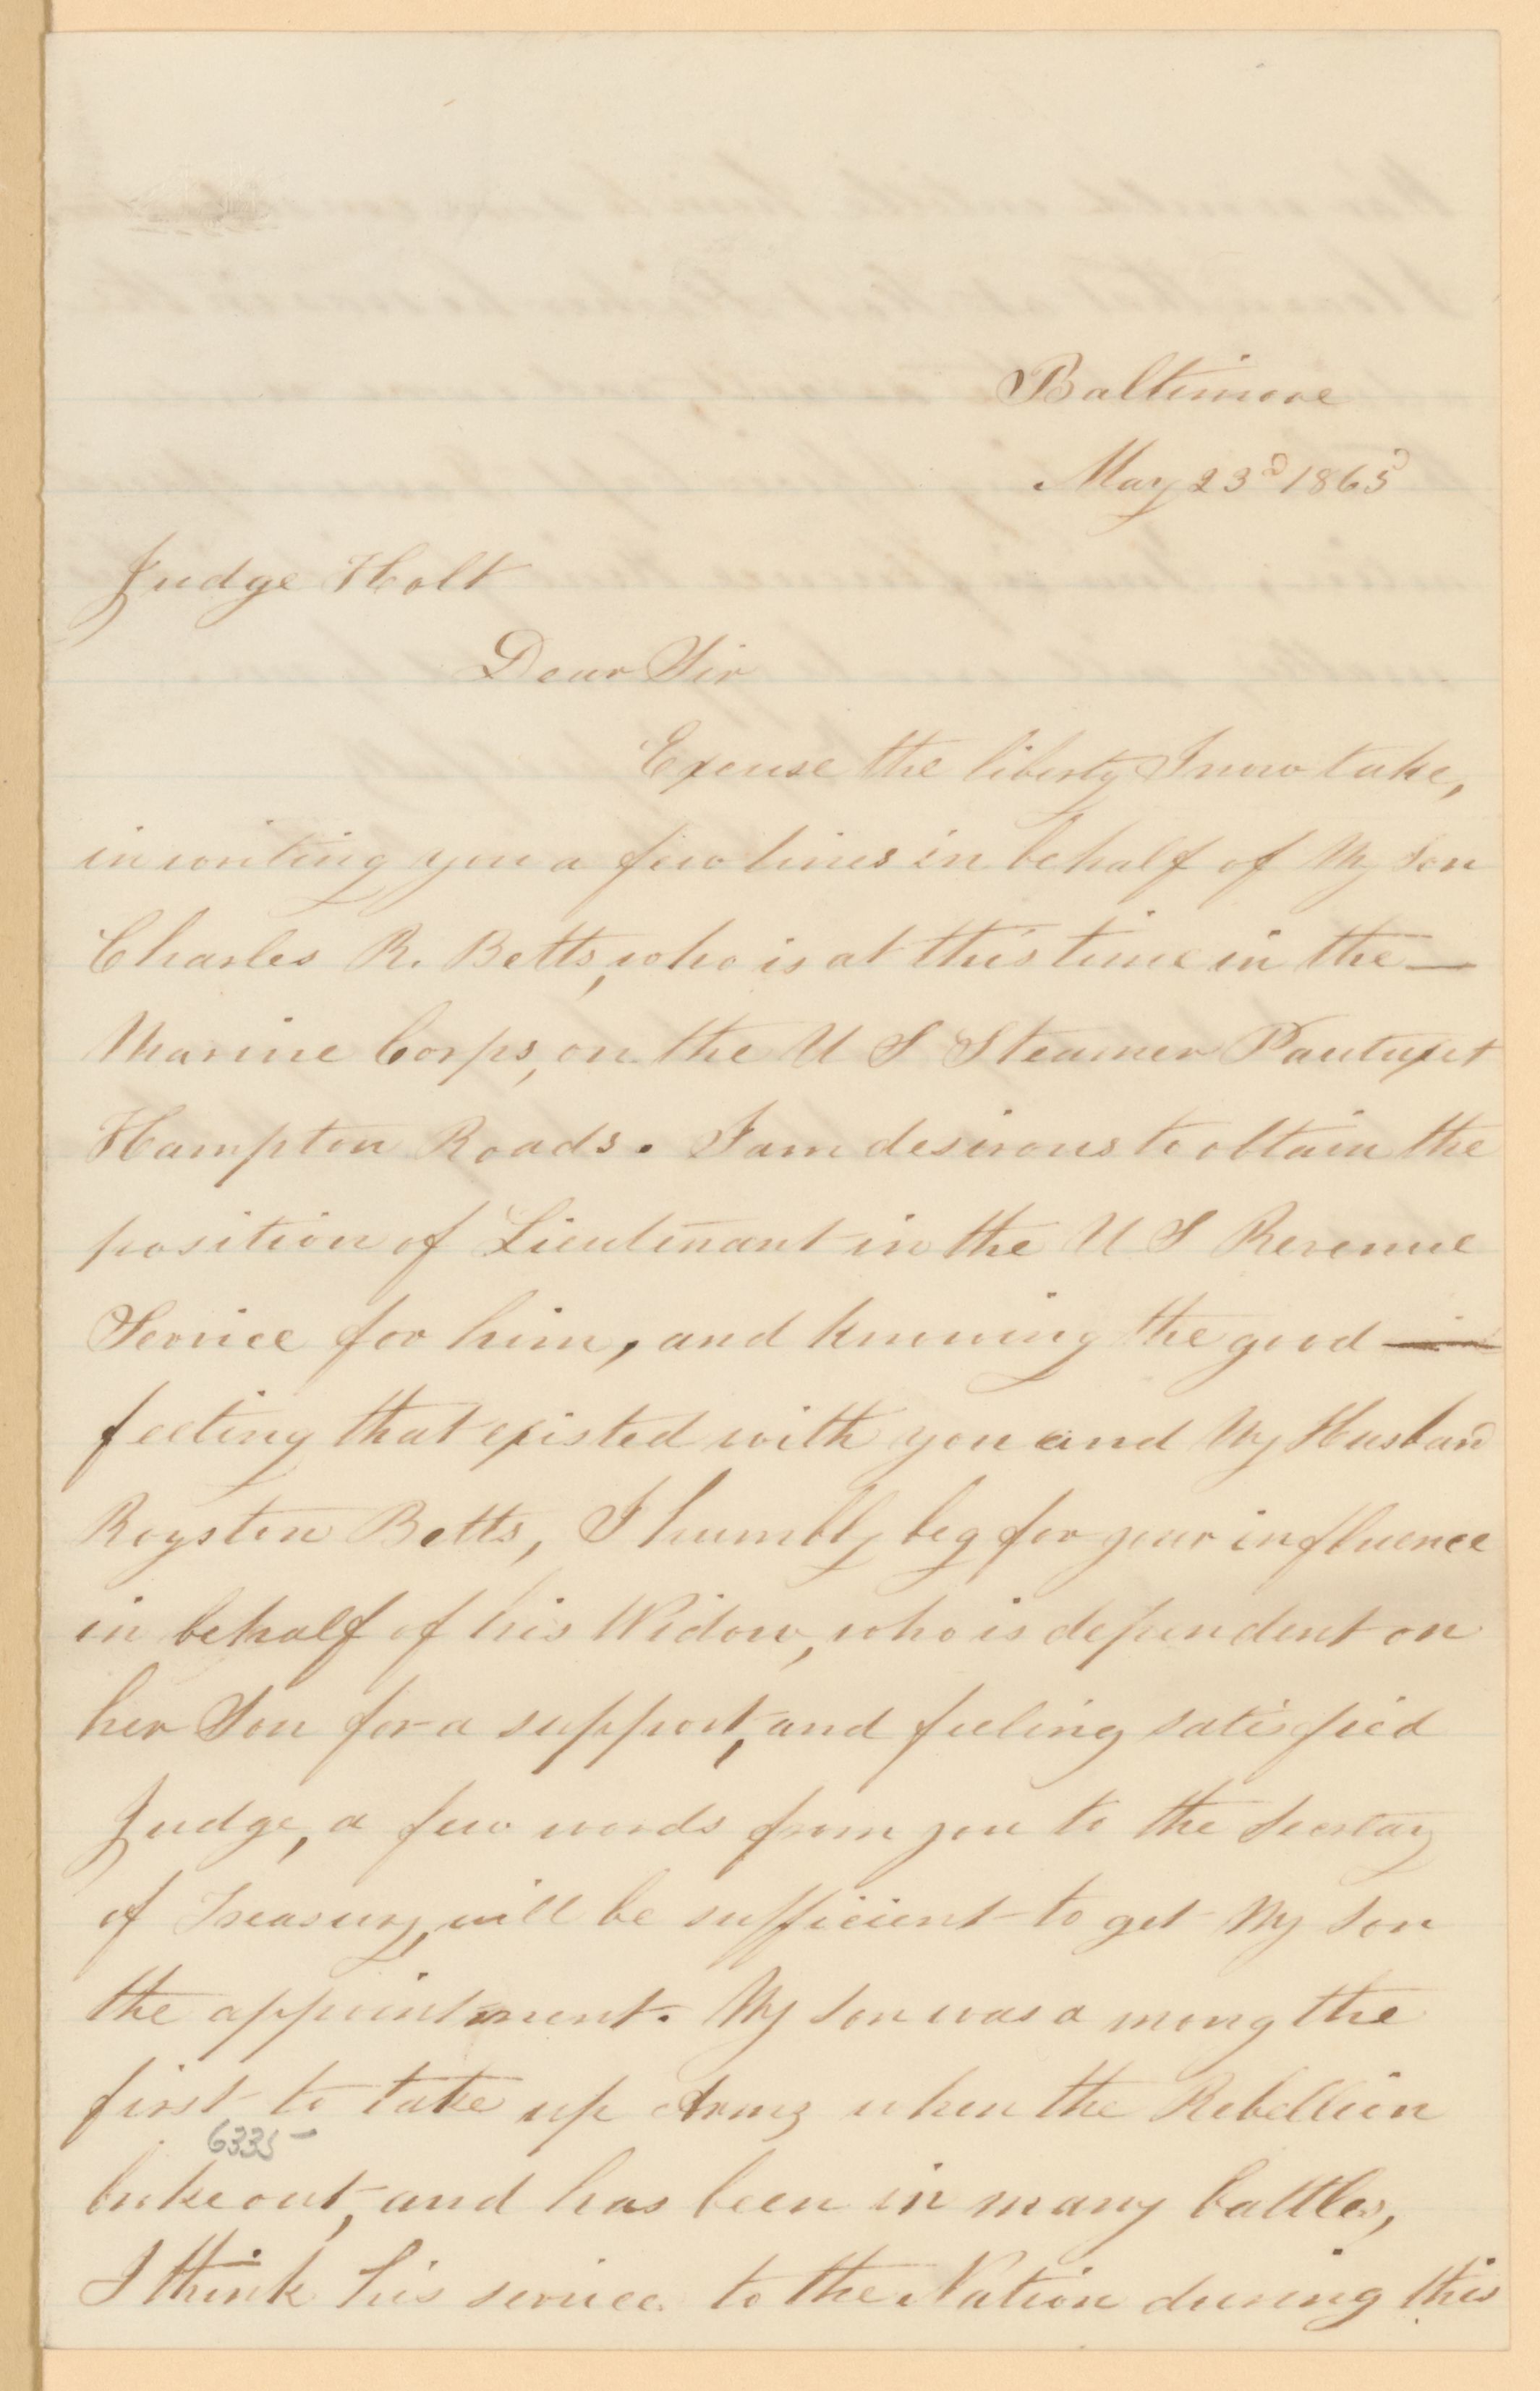 Baltimore
May 23d 1865
Judge Holt
Dear Sir
Excuse the liberty I now take,
in writing you a few lines in behalf of My Son
Charles R. Betts, who is at this time in the —
Marine Corps, on the U S Steamer Pautuxet
Hampton Roads. I am desirous to obtain the
position of Lieutenant in the U S Revenue
Service for him, and knowing the good —
feeling that existed with you and My Husband
Royston Betts, I humbly beg for your influence
in behalf of his Widow, who is dependent on
her Son for a support, and feeling satisfied
Judge, a few words from you to the Secretary
of Treasury, will be sufficient to get My Son
the appointment. My Son was a mong the
first to take up Arms when the Rebellion
6335 –
broke out, and has been in many battles,
I think his service to the Nation during this